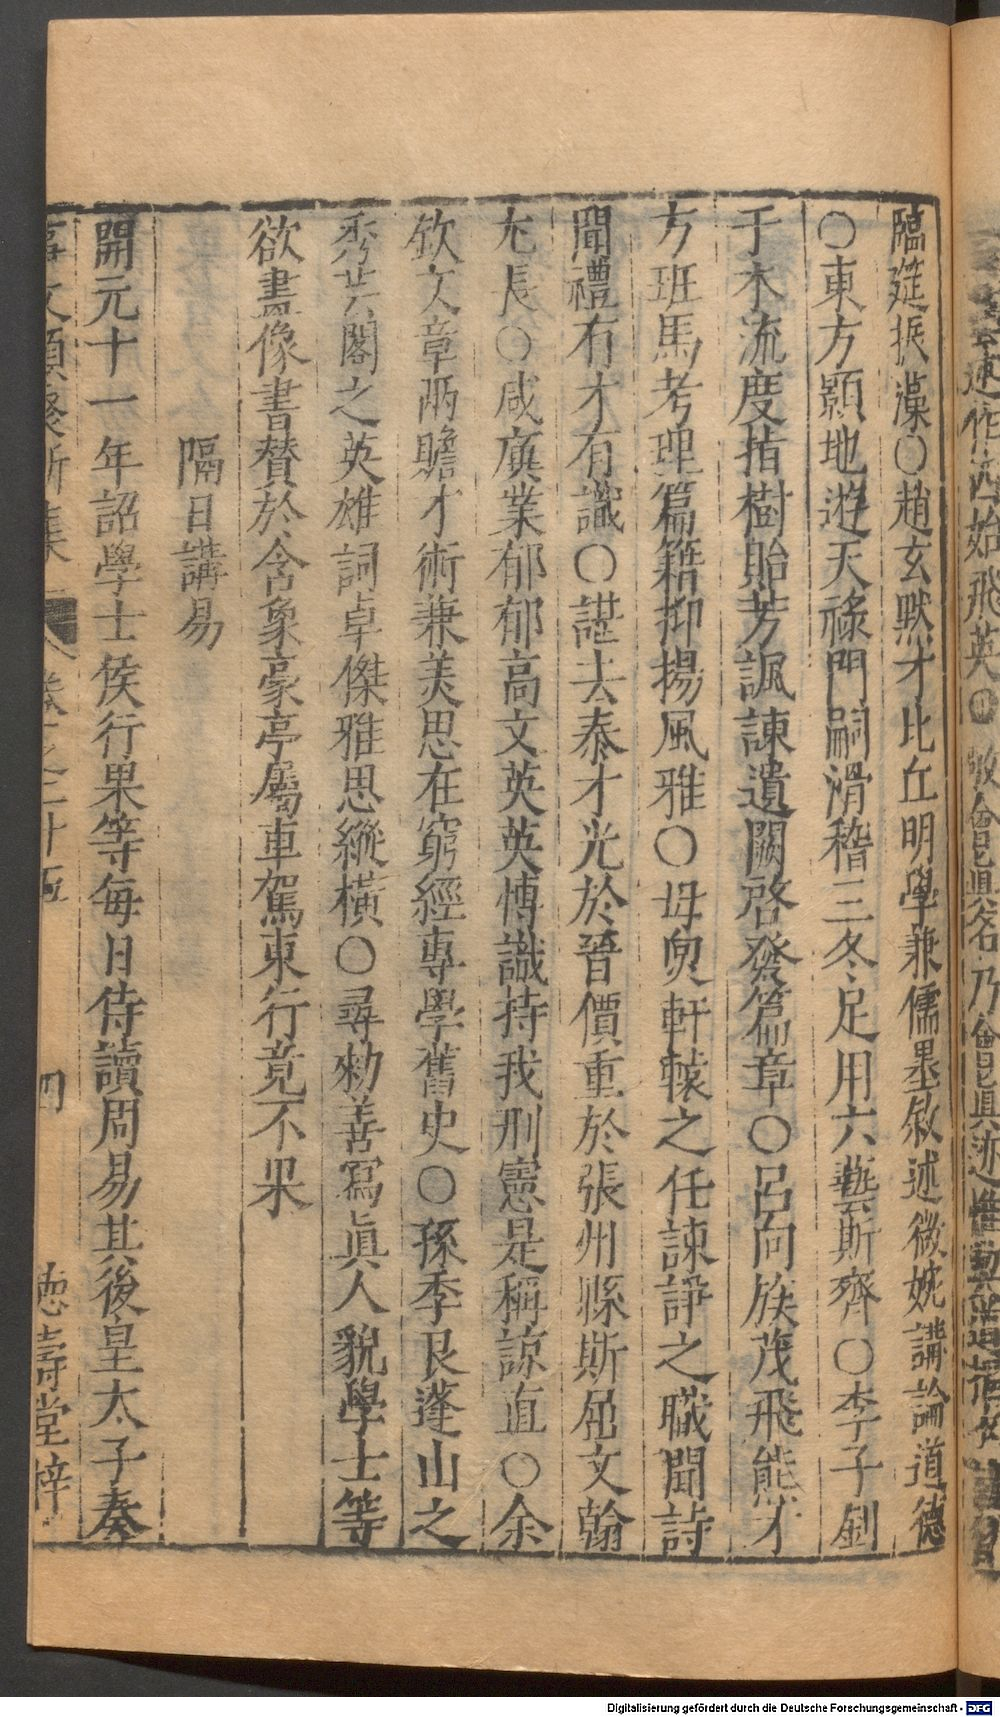 臨筵振藻○趙玄默才比丘明學兼儒墨敘述微婉講論道德
○東方顥地遊天祿門嗣滑稽三冬足用六藝斯齊○李子釗
于木流度指樹貽芳諷諫遺闕啓發篇章○呂向族茂飛熊才
方班馬考理篇籍抑揚風雅○毋煚軒轅之任諫諍之職聞詩
聞禮有才有識○諶去泰才光於晉價重於張州縣斯屈文翰
尤長○咸廙業郁郁高文英英博識持我刑憲是稱諒直○余
欽文章兩贍才術兼美思在窮經專學舊史○孫季良蓬山之
秀芸閣之英雄詞卓傑雅思縱橫○尋勑善寫眞人貌學士等
欲畫像書贊於含象豪亭屬車駕東行竟不果
隔日講易
開元十一年詔學士侯行果等每日侍讀周易其後皇太子奏
事文類聚新集 卷之二十五 四 德壽堂梓
Digitalisierung gefördert durch die Deutsche Forschungsgemeinschaft - DFG